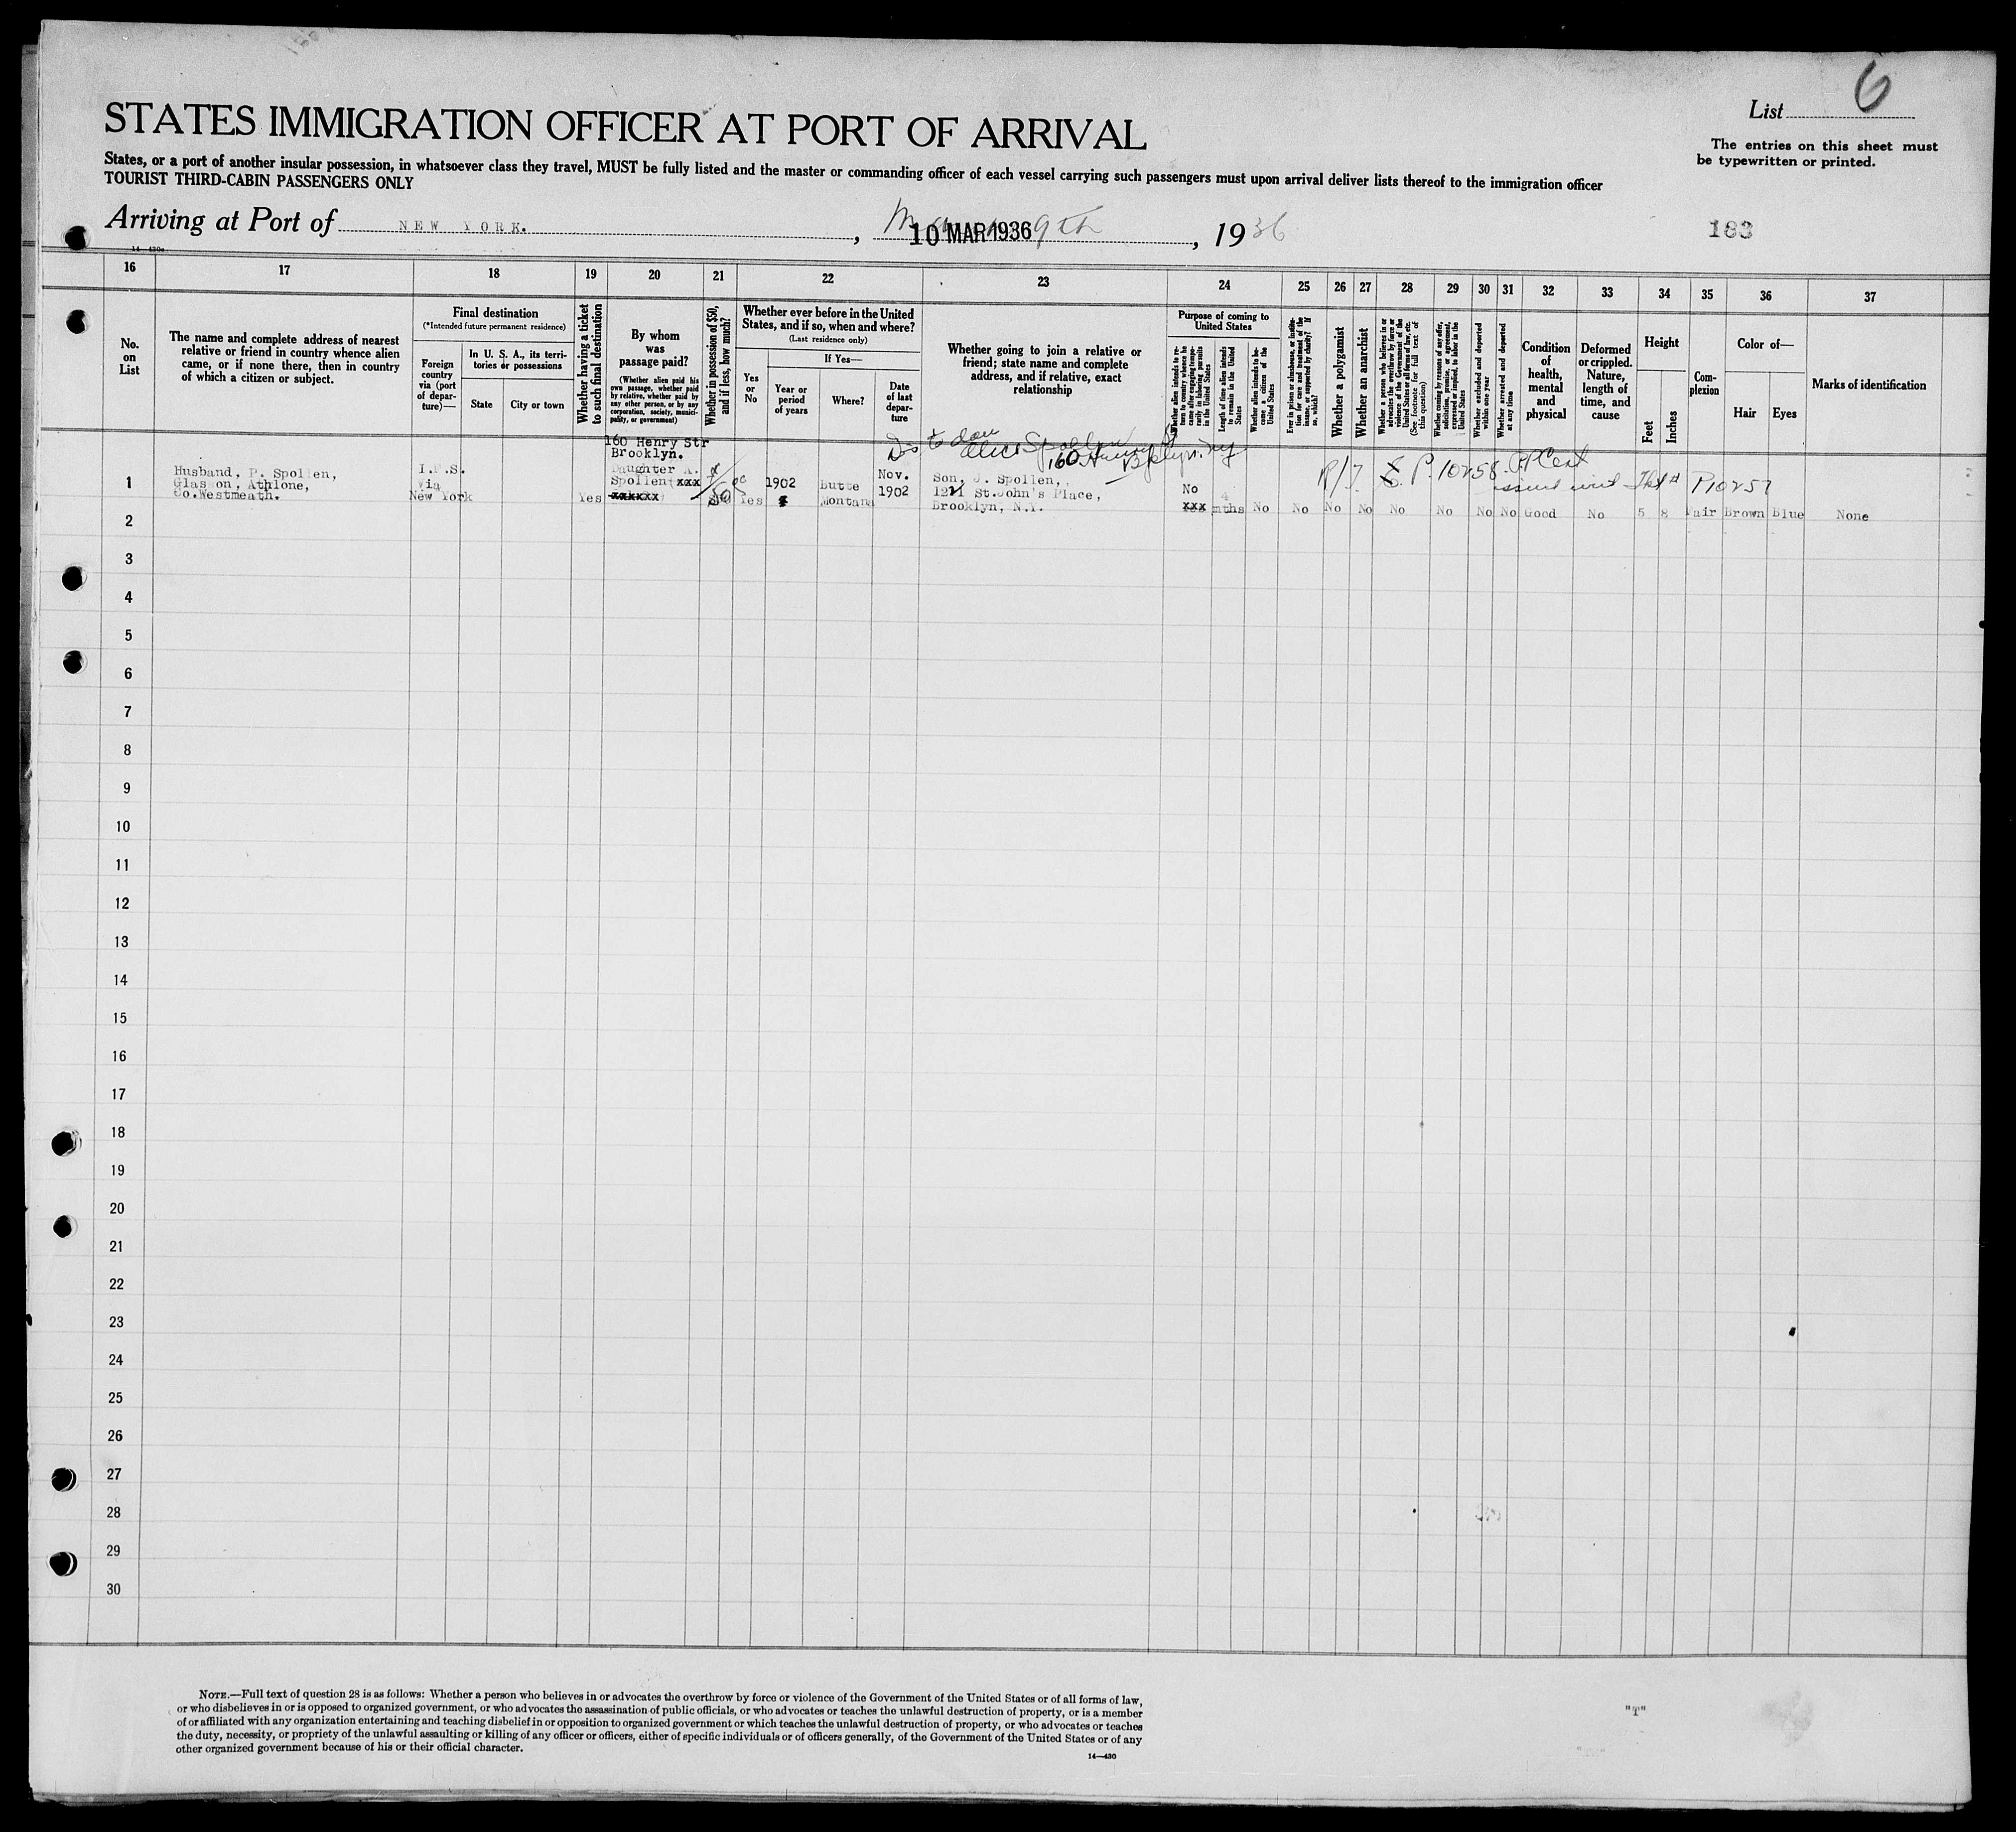 List 6
STATES IMMIGRATION OFFICER AT PORT OF ARRIVAL
The entries on this sheet must
be typewritten or printed.
States, or a port of another insular possession, in whatsoever class they travel, MUST be fully listed and the master or commanding officer of each vessel carrying such passengers must upon arrival deliver lists thereof to the immigration officer
TOURIST THIRD-CABIN PASSENGERS ONLY
Arriving at Port of NEW YORK. , 10 MAR 1936 9th , 1936
183
14—430a
16 17 18 19 20 21 22 23 24 25 26 27 28 29 30 31 32 33 34 35 36 37
No.
on
List
The name and complete address of nearest
relative or friend in country whence alien
came, or if none there, then in country
of which a citizen or subject.
Final destination
(*Intended future permanent residence)
Foreign
country
via (port
of depar-
ture)—
In U. S. A., its terri-
tories or possessions
State
City or town
Whether having a ticket
to such final destination
By whom
was
passage paid?
(Whether alien paid his
own passage, whether paid
by relative, whether paid by
any other person, or by any
corporation, society, munici-
pality, or government)
Whether in possession of $50,
and if less, how much?
Whether ever before in the United
States, and if so, when and where?
(Last residence only)
Yes
or
No
If Yes—
Year or
period
of years
Where?
Date
of last
depar-
ture
Whether going to join a relative or
friend; state name and complete
address, and if relative, exact
relationship
Purpose of coming to
United States
Whether alien intends to re-
turn to country whence he
came after engaging tempo-
rarily in laboring pursuits
in the United States
Length of time alien intends
to remain in the United
States
Whether alien intends to be-
come a citizen of the
United States
Ever in prison or almshouse, or institu-
tion for care and treatment of the
insane, or supported by charity? If
so, which?
Whether a polygamist
Whether an anarchist
Whether a person who believes in or
advocates the overthrow by force or
violence of the Government of the
United States or all forms of law, etc.
(See footnote for full text of
this question)
Whether coming by reasons of any offer,
solicitation, promise, or agreement,
expressed or implied, to labor in the
United States
Whether excluded and deported
within one year
Whether arrested and deported
at any time
Condition
of
health,
mental
and
physical
Deformed
or crippled.
Nature,
length of
time, and
cause
Height
Feet
Inches
Com-
plexion
Color of—
Hair
Eyes
Marks of identification
160 Henry Str
Brooklyn.
Daughter A.
Spollen xxx
xxxxxx
Alice Spollen
160 Henry St
Bklyn. NY
1
Husband, P. Spollen,
Glasson, Athlone,
Co.Westmeath.
I.F.S.
Via
New York
Yes
$50
Yes
1902
Butte
Montana
Nov.
1902
Son, J. Spollen,
1221 St.John's Place,
Brooklyn, N.Y.
No
xxx
4
mths
No No No No No No No No Good No 5 8 Fair Brown Blue None
P. 10258
P10257
2
3
4
5
6
7
8
9
10
11
12
13
14
15
16
17
18
19
20
21
22
23
24
25
26
27
28
29
30
NOTE.—Full text of question 28 is as follows: Whether a person who believes in or advocates the overthrow by force or violence of the Government of the United States or of all forms of law,
or who disbelieves in or is opposed to organized government, or who advocates the assassination of public officials, or who advocates or teaches the unlawful destruction of property, or is a member
of or affiliated with any organization entertaining and teaching disbelief in or opposition to organized government or which teaches the unlawful destruction of property, or who advocates or teaches
the duty, necessity, or propriety of the unlawful assaulting or killing of any officer or officers, either of specific individuals or of officers generally, of the Government of the United States or of any
other organized government because of his or their official character.
14—430
"T"